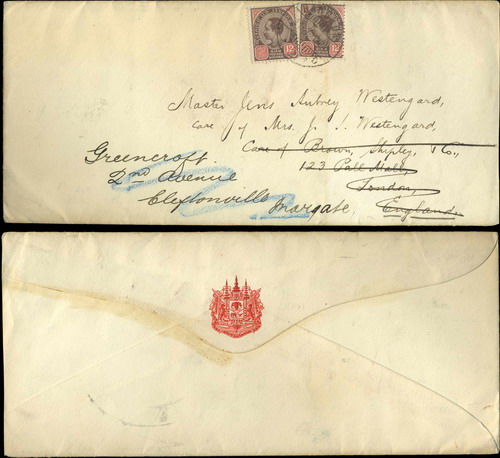 12 12
Master Jens Aubrey Westengard,
care of Mrs. J. I. Westengard,
Care of Brown, Shipley, & Co.,
123 Pall Mall,
London,
England.
Greencroft.
2nd Avenue
Cliftonville
Margate,